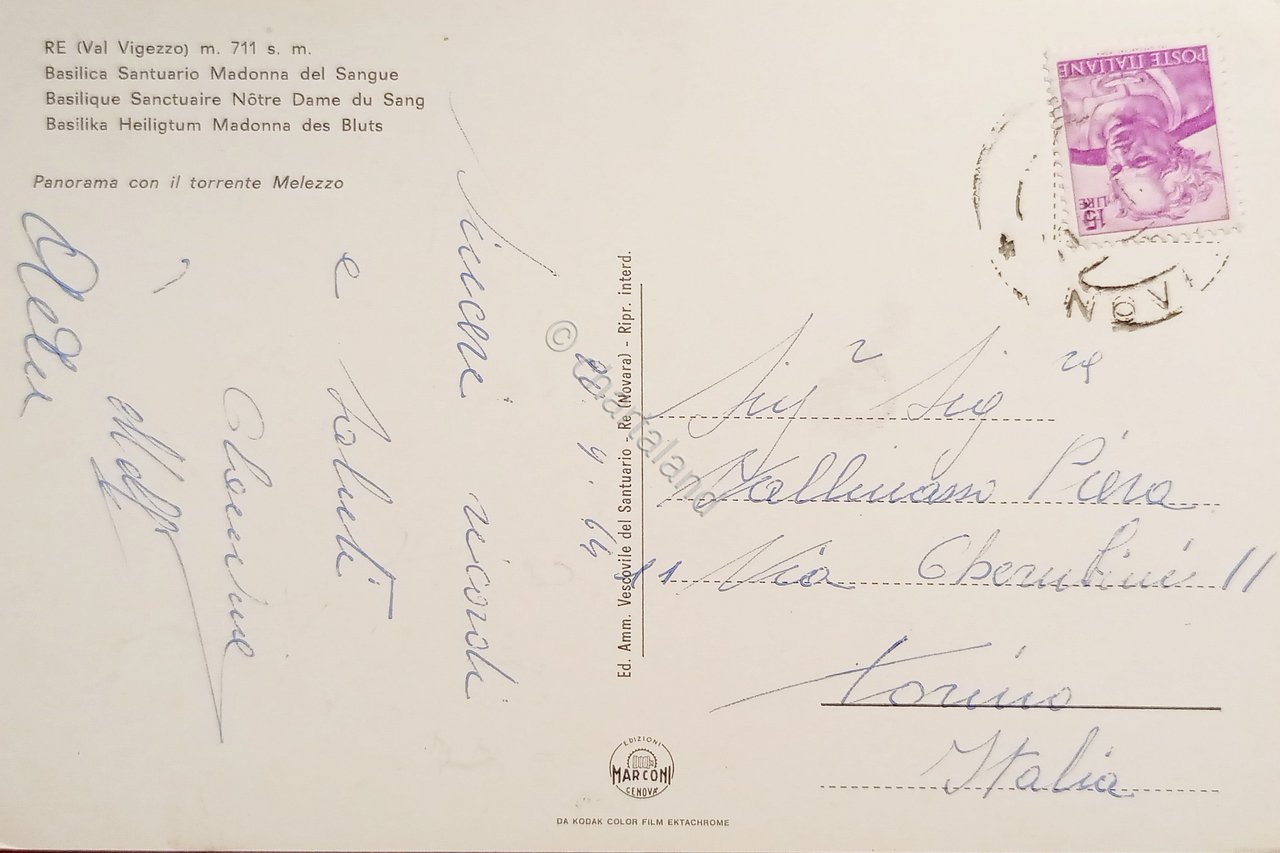 RE (Val Vigezzo) m. 711 s. m.
Basilica Santuario Madonna del Sangue
Basilique Sanctuaire Nôtre Dame du Sang
Basilika Heiligtum Madonna des Bluts
Panorama con il torrente Melezzo
Sinceri ricordi
e saluti
Ed. Amm. Vescovile del Santuario - Re (Novara) - Ripr. interd.
© Chartaland
POSTE ITALIANE
15 LIRE
NOV
Sig Sig ra
Piera
Via Cherubini 11
Torino
Italia
EDIZIONI
MARCONI
GENOVA
DA KODAK COLOR FILM EKTACHROME